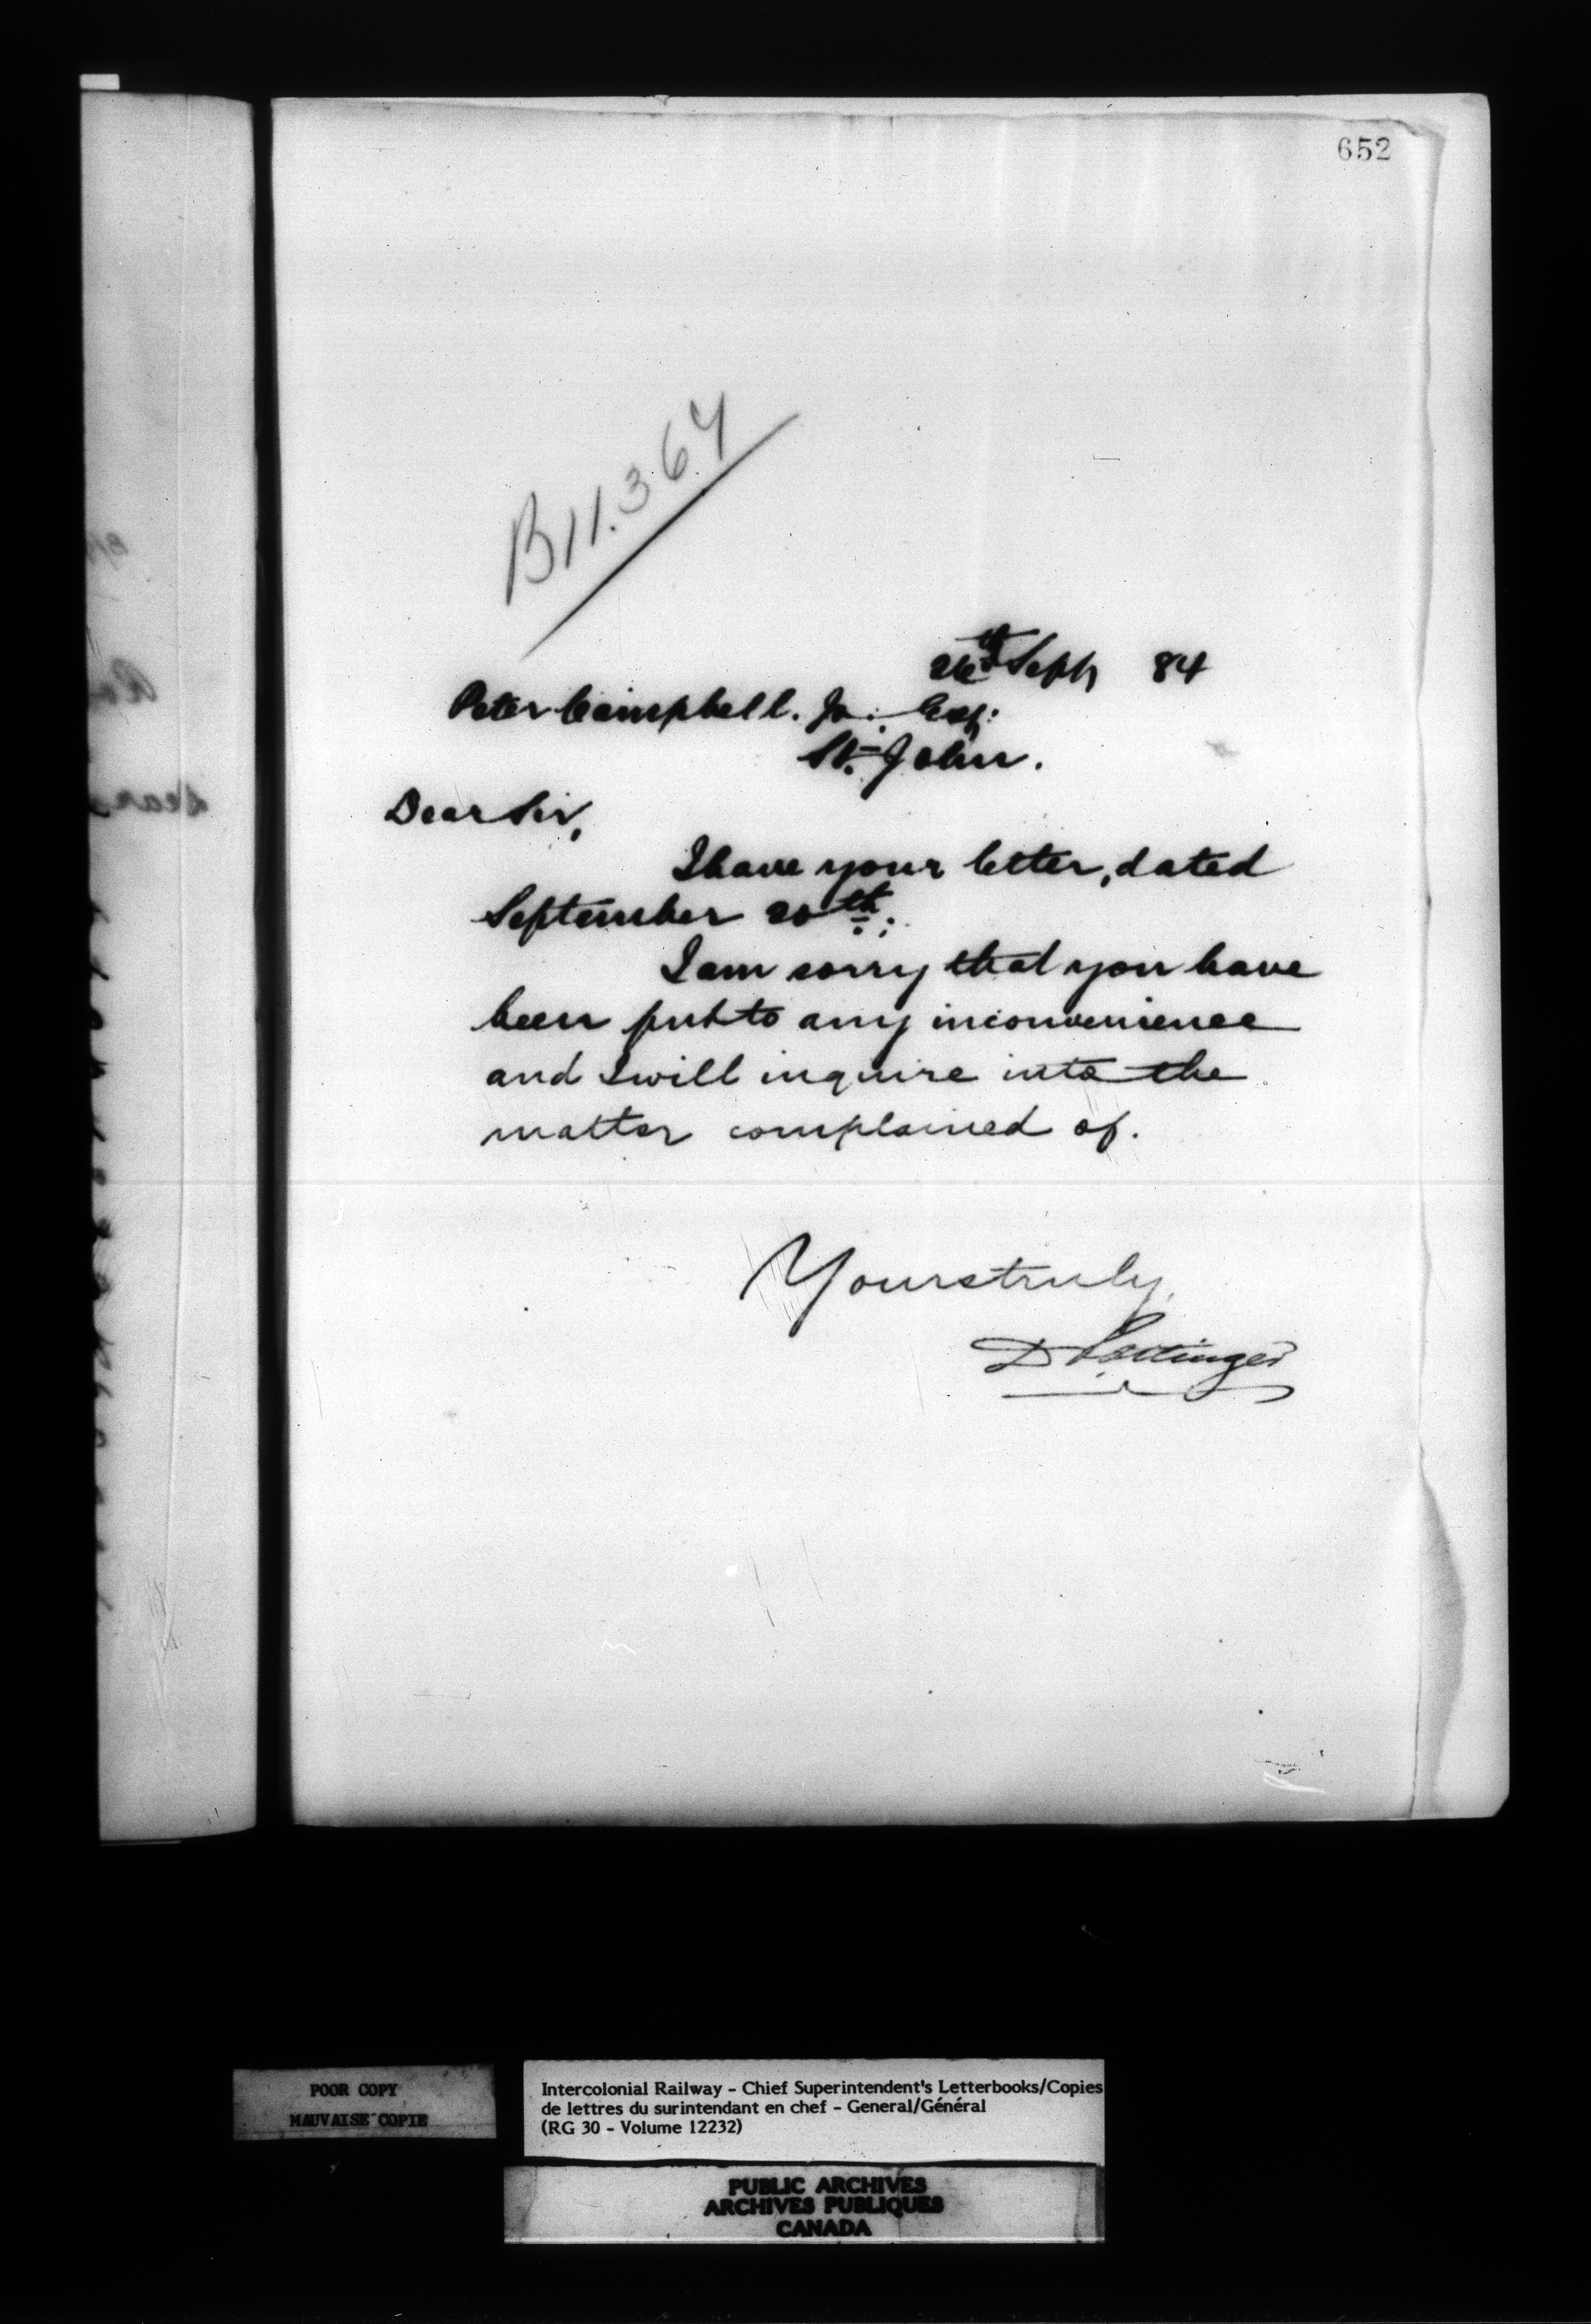 652
B11.364
26th Sept 84
Peter Campbell. Jr. Esq:
St. John.
Dear Sir,
I have your letter, dated
September 20th;
I am sorry that you have
been put to any inconvenience
and I will inquire into the
matter complained of.
Yours truly,
D Pottinger
POOR COPY
MAUVAISE COPIE
Intercolonial Railway - Chief Superintendent's Letterbooks/Copies
de lettres du surintendant en chef - General/Général
(RG 30 - Volume 12232)
PUBLIC ARCHIVES
ARCHIVES PUBLIQUES
CANADA